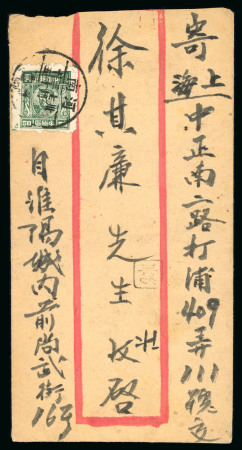 寄
上海
中正南二路打浦409弄111號交
徐其廉先生 收啓
自淮陽城內前尚武街16号